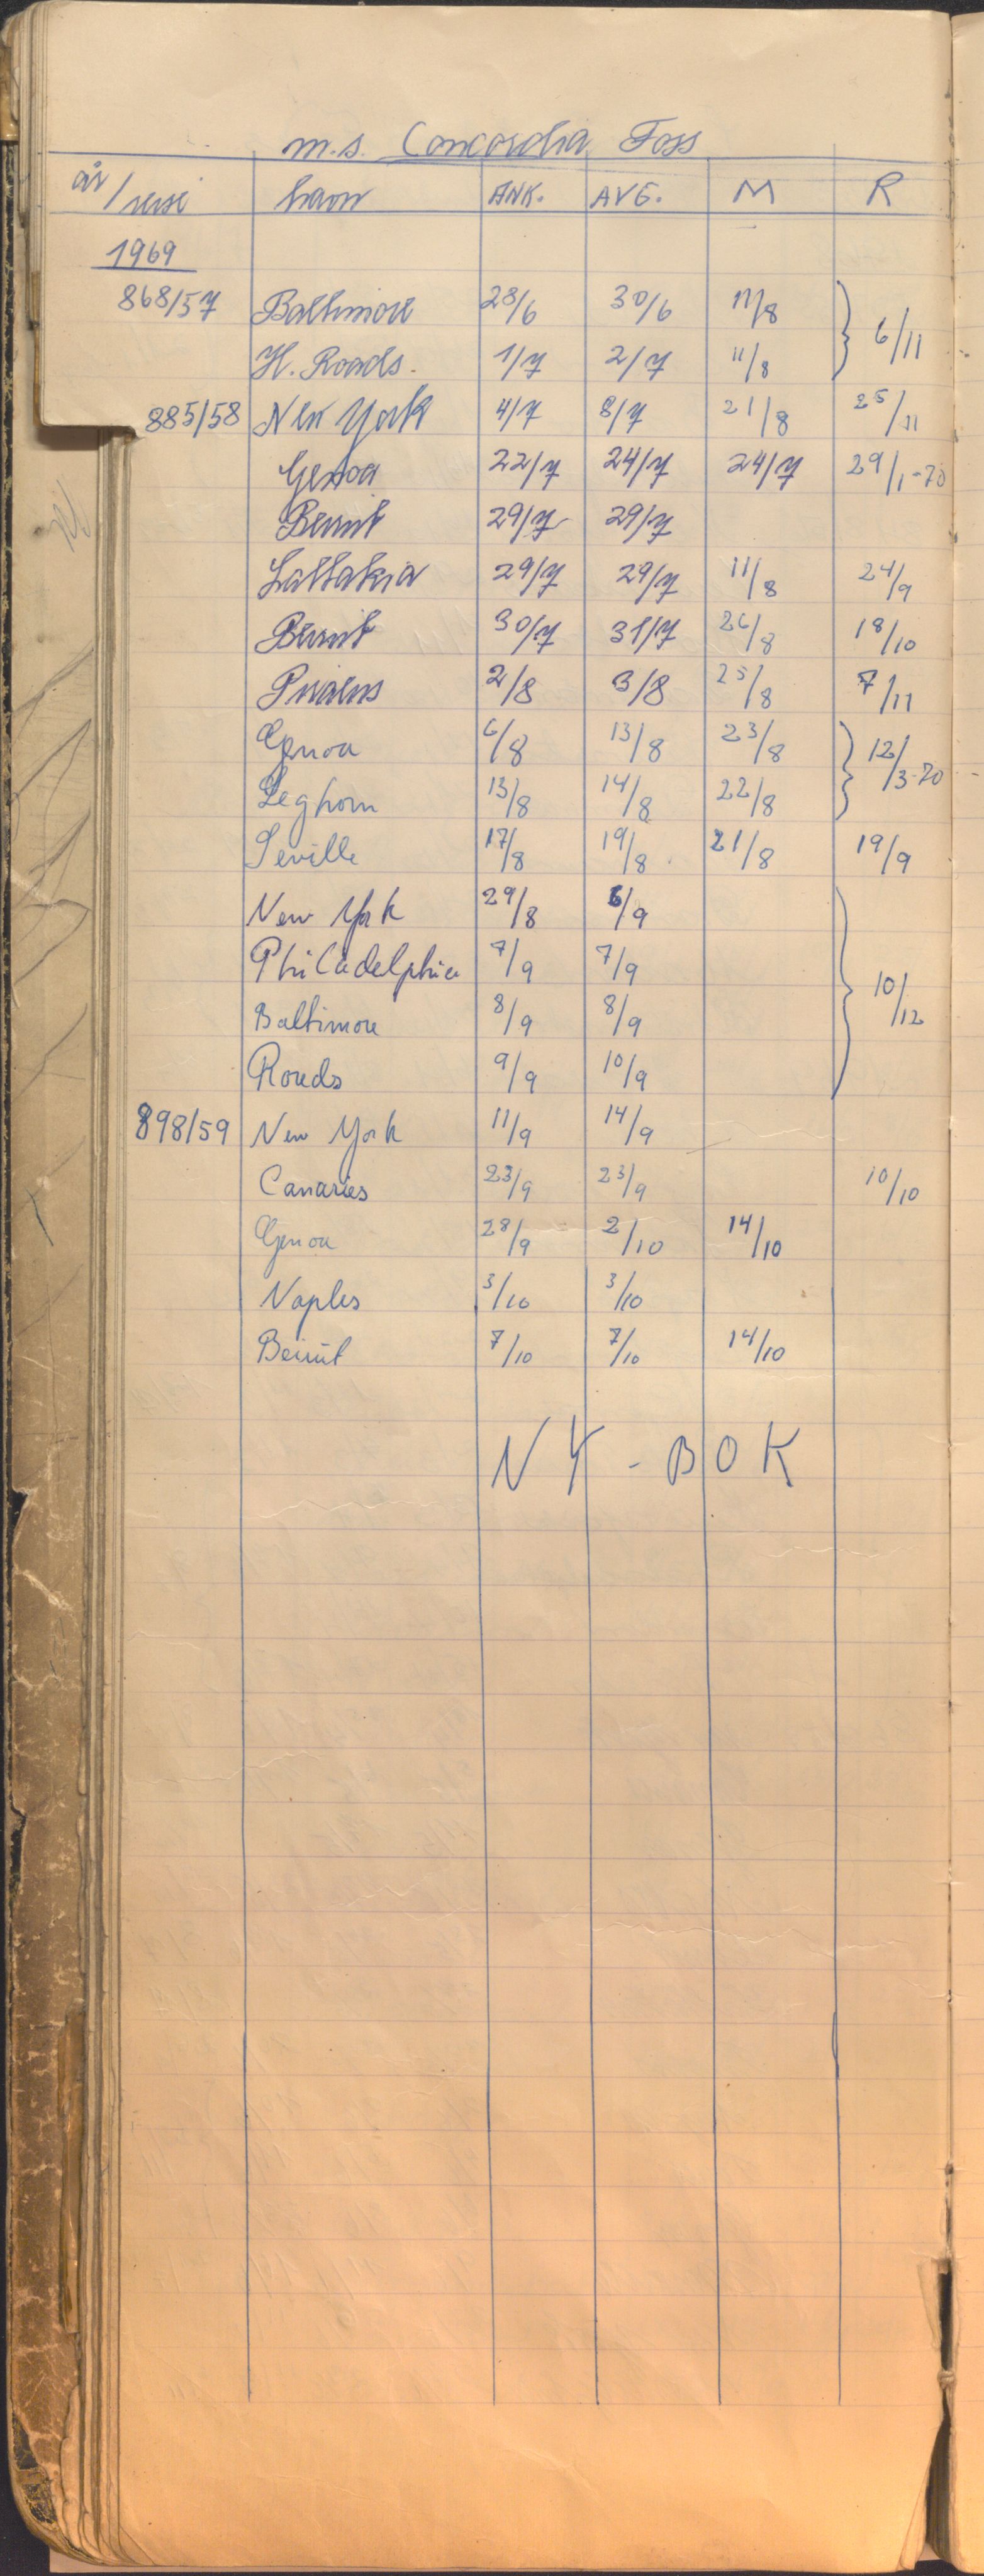 m.s. Concordia Foss
år/reise havn ANK. AVG. M R
1969
868/57 Baltimore 28/6 30/6 11/8 } 6/11
H. Roads. 1/7 2/7 11/8
885/58 New York 4/7 8/7 21/8 25/11
Genoa 22/7 24/7 24/7 29/1-70
Beirut 29/7 29/7
Lattakia 29/7 29/7 11/8 24/9
Beirut 30/7 31/7 26/8 18/10
Piraeus 2/8 3/8 25/8 7/11
Genoa 6/8 13/8 23/8 } 12/3-70
Leghorn 13/8 14/8 22/8
Seville 17/8 19/8 21/8 19/9
New York 29/8 6/9
Philadelphia 7/9 7/9 } 10/12
Baltimore 8/9 8/9
Roads 9/9 10/9
898/59 New York 11/9 14/9
Canaries 23/9 23/9 10/10
Genoa 28/9 2/10 14/10
Naples 3/10 3/10
Beirut 7/10 7/10 14/10
NY - BOK